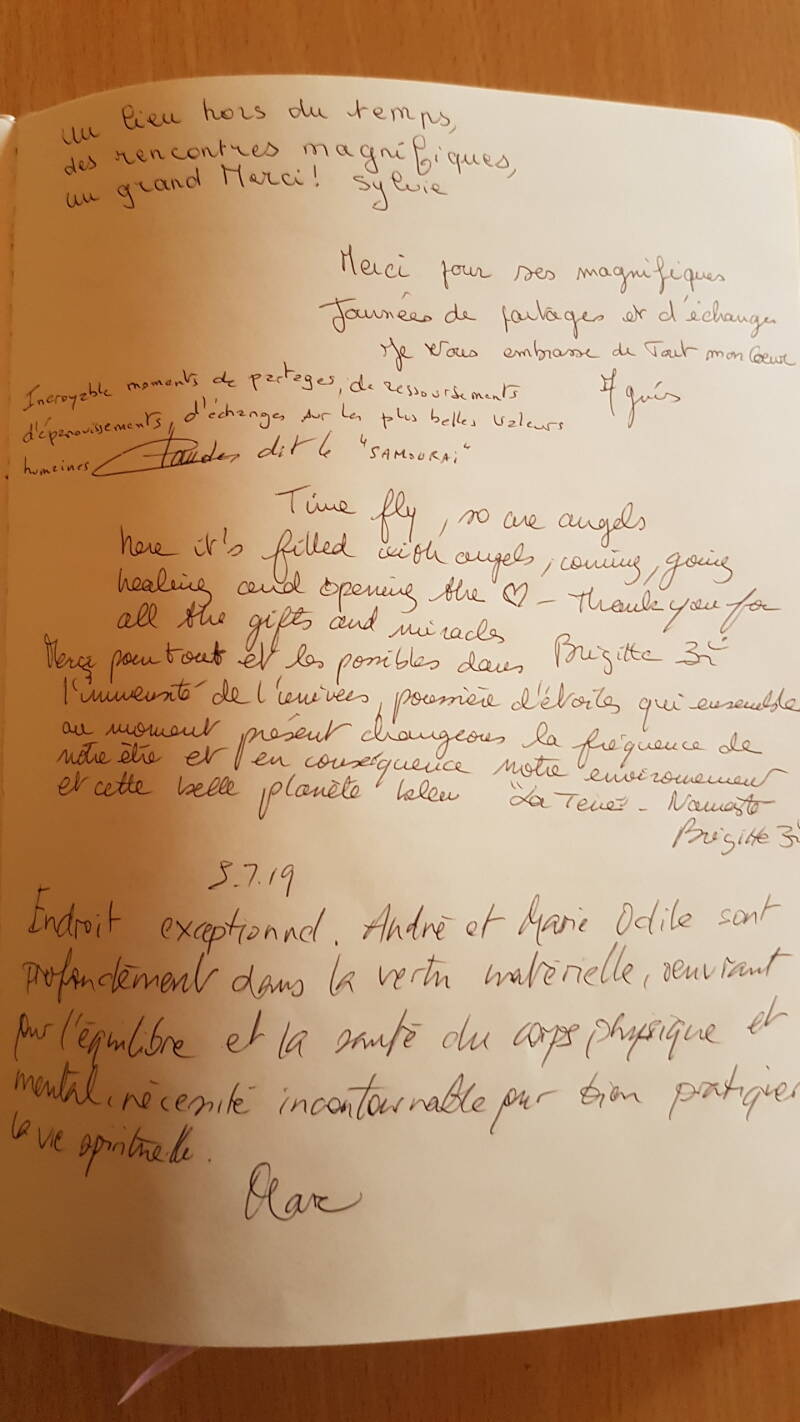 un lieu hors du temps,
des rencontres magnifiques,
un grand Merci! Sylvie
Merci pour ses magnifiques
Journées de partages et d'échanges
Je vous embrasse de Tout mon Coeur
Agnès
Incroyable moments de partages, de ressoursements
d'épanouissements, d'échanges sur les plus belles valeurs
humaines dit le "SAMOURAi"
Time fly, so are angels
here it's filled with angels, coming, going
healing and opening the ♡ - Thank you for
all the gifts and miracles
Brigitte
Merci pour tout et les possibles dans
l'immensité de l'univers, poussière d'étoiles qui ensemble
au moment présent changeons la fréquence de
notre être et en conséquence notre environement
et cette belle planète bleu "La Terre" - Namaste
Brigitte
5.7.19
Endroit exceptionnel. André et Marie Odile sont
profondément dans la vertu matérielle, oeuvrant
pour l'équilibre et la santé du corps physique et
mental, nécessité incontournable pour bien pratiquer
la vie spirituelle.
Marc